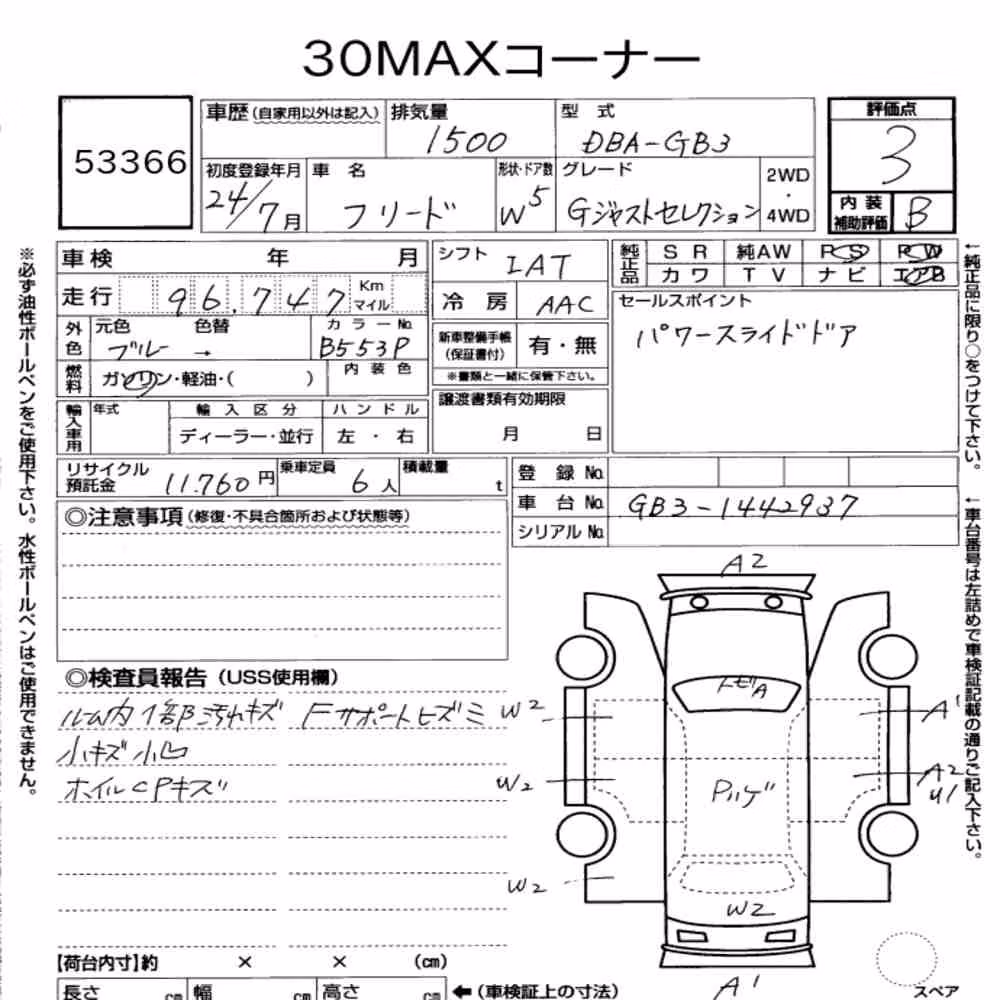 30MAXコーナー
53366
車歴(自家用以外は記入) 排気量 型式 評価点
1500 DBA-GB3 3
初度登録年月 車名 形状・ドア数 グレード 2WD・4WD
24/7月 フリード W5 Gジャストセレクション
内装補助評価 B
車検 年 月 シフト IAT
走行 96,747 Km マイル 冷房 AAC
純正品 SR 純AW PS PW
カワ TV ナビ エアB
セールスポイント
パワースライドドア
外色 元色 色替 カラーNo.
ブルー → B553P
新車整備手帳(保証書付) 有・無
※書類と一緒に保管下さい。
燃料 ガソリン・軽油・( ) 内装色
輸入車用 年式 輸入区分 ハンドル
ディーラー・並行 左・右
譲渡書類有効期限
月 日
リサイクル預託金 11.760円 乗車定員 6人 積載量 t
登録No.
車台No. GB3-1442937
シリアルNo.
◎注意事項(修復・不具合箇所および状態等)
◎検査員報告(USS使用欄)
ルーム内1部汚れキズ Fサポートヒズミ
小キズ小凹
ホイルCPキズ
A2
トビA
W2
A1
W2
Pルゲ
A2
U1
W2
W2
A1
【荷台内寸】約 × × (cm)
長さ cm 幅 cm 高さ cm ←(車検証上の寸法)
スペア
※必ず油性ボールペンをご使用下さい。水性ボールペンはご使用できません。
←純正品に限り○をつけて下さい。
←車台番号は左詰めで車検証記載の通りご記入下さい。